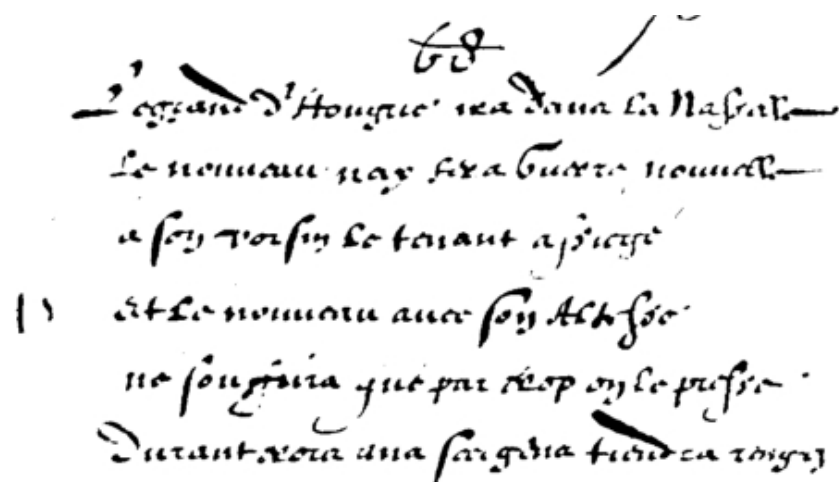 Legrand d'Hongrie ira dans La Nasselle
Le nouveau nay fera Guerre nouvelle
a son voisin Le tenant assiege
Et Le nouveau avec son Altesse
ne souffrira que par trop on le presse
Durant trois ans ses gens tiendra rengez